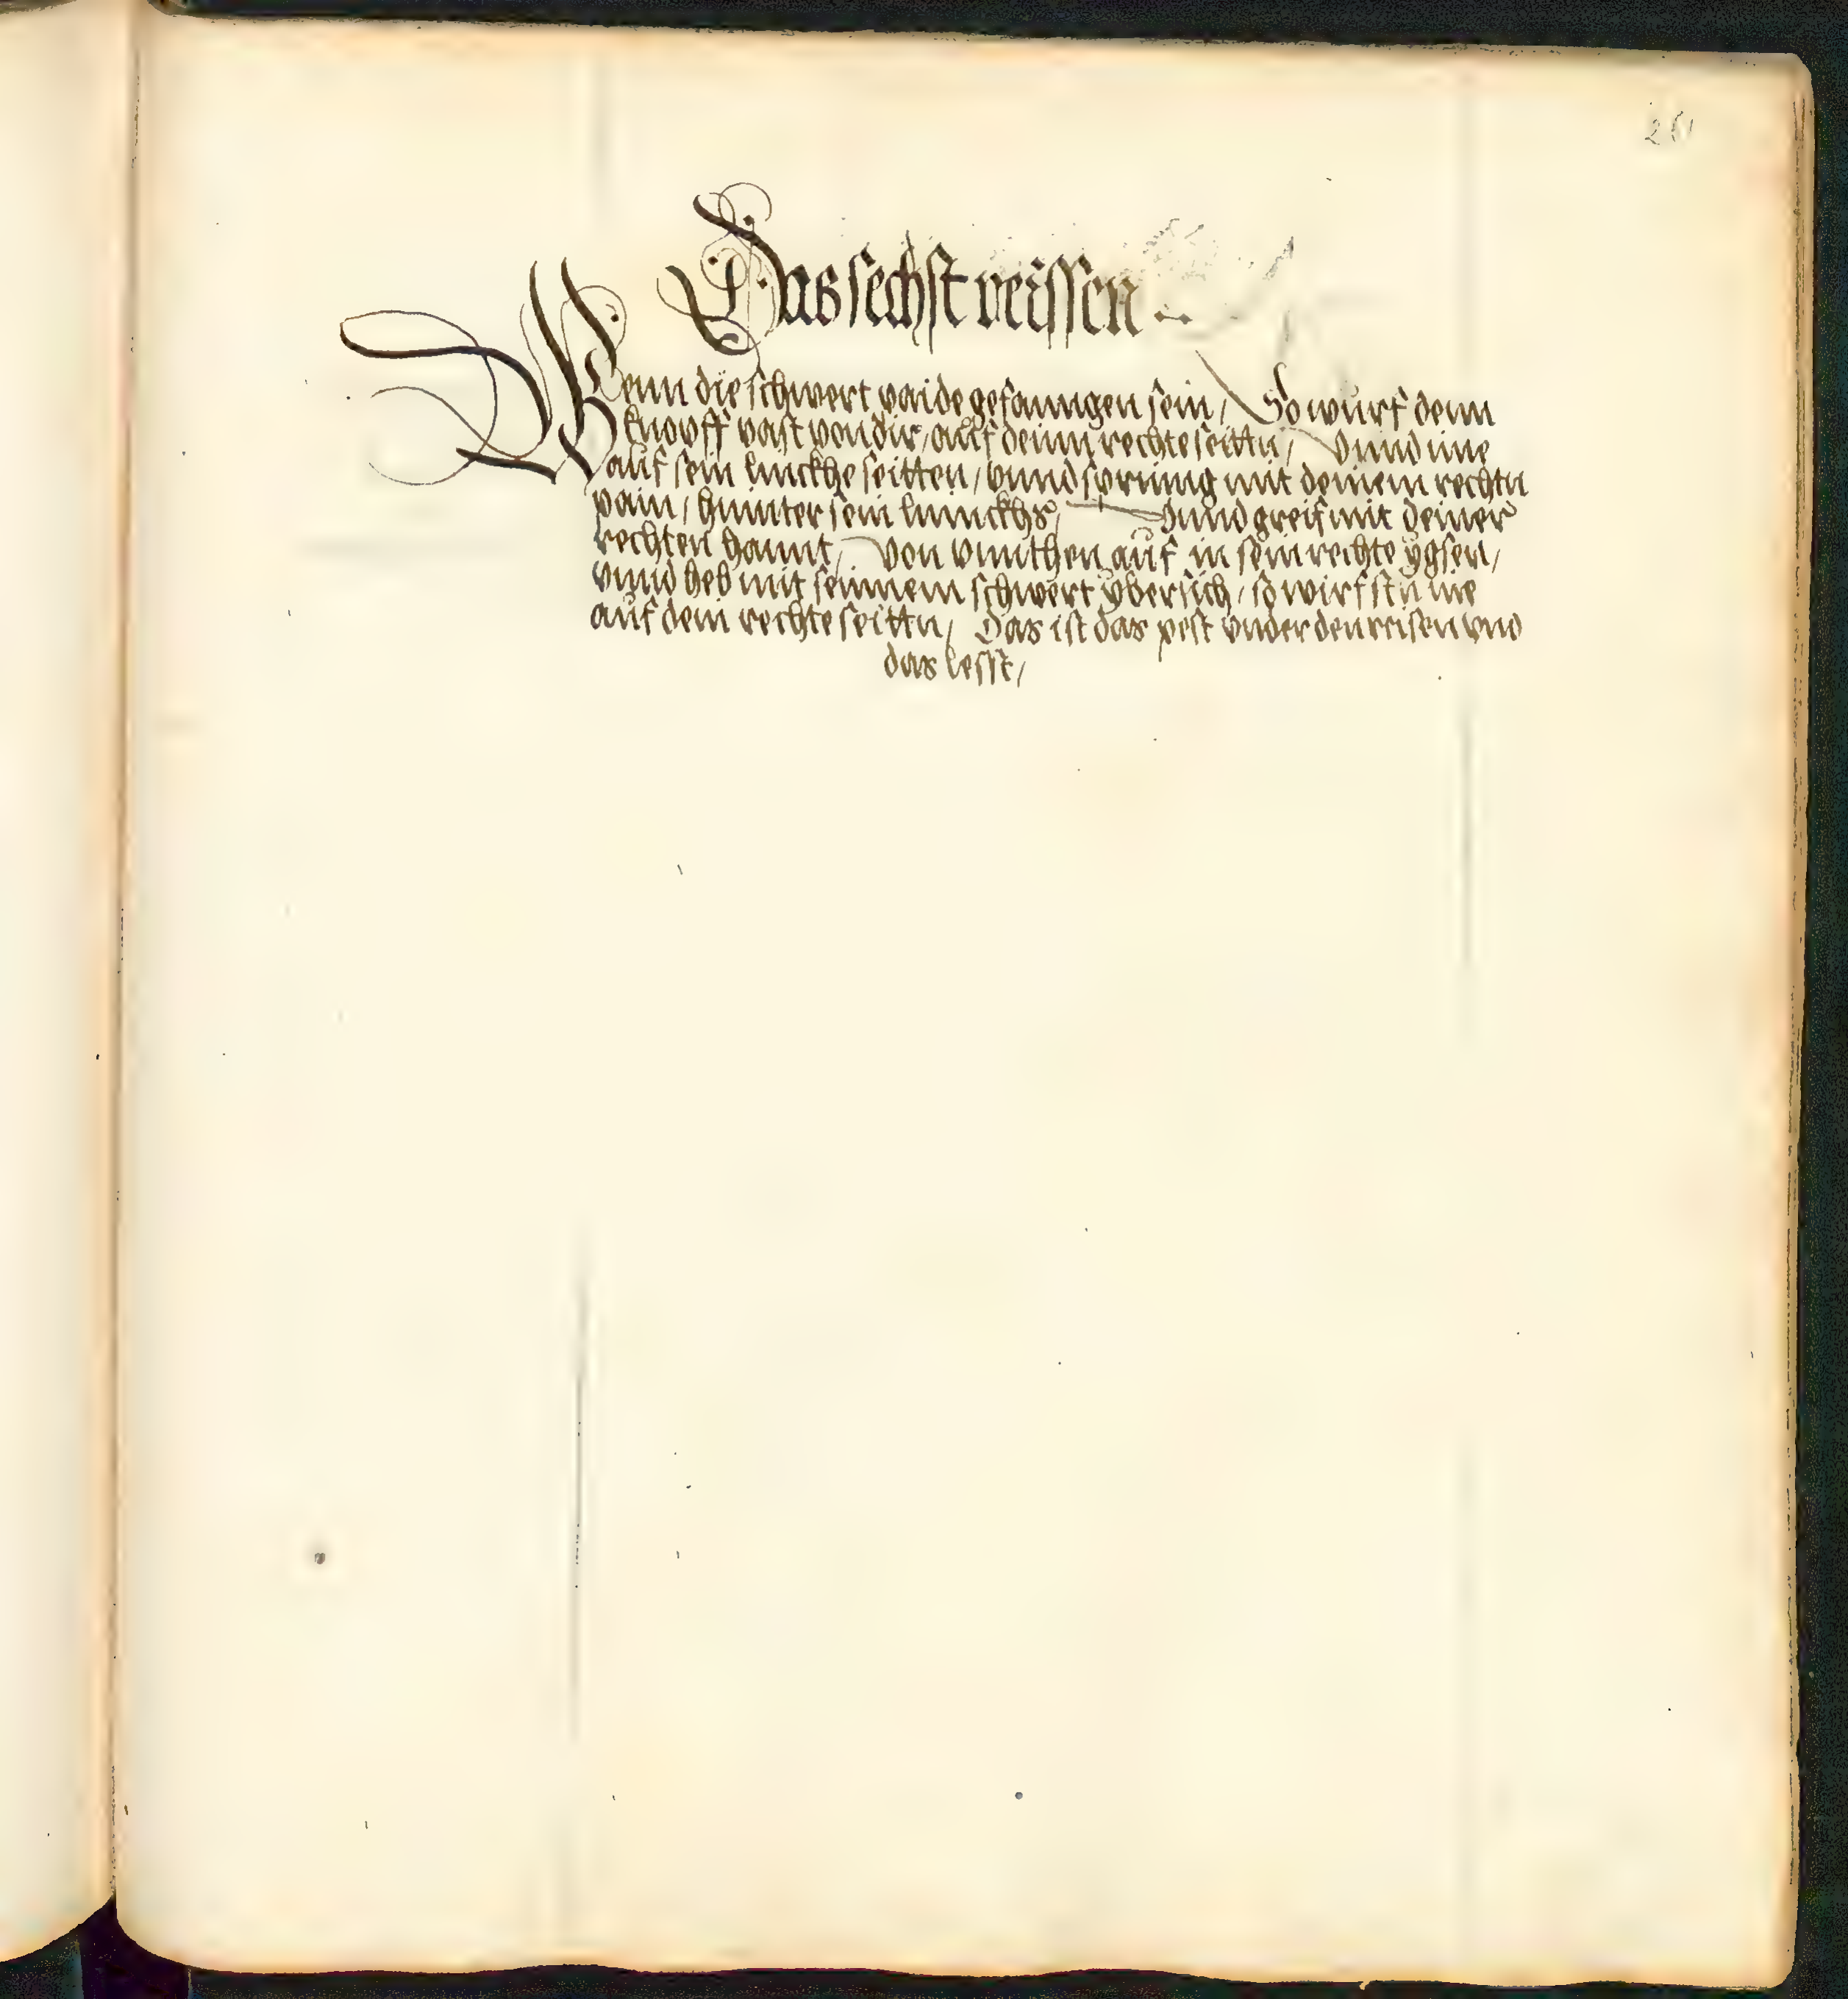 261
Das sechst reissen
Wenn die schwert paide gefanngen sein / So würf denn
knopff vast von dir / auf deinn rechte seittn / Vnnd ine
auf sein linckhe seitten / vnnd spring mit deinem rechtn
pain / hinnter sein linnckhs / Vnnd greif mit deiner
rechten hannt / Von vnnthen auf in sein rechte ÿgsen /
vnnd heb mit seinnem schwert ÿbersich / so wirfstu ine
auf dein rechte seittn / Das ist das pest vnder den reisen vnd
das lesst /